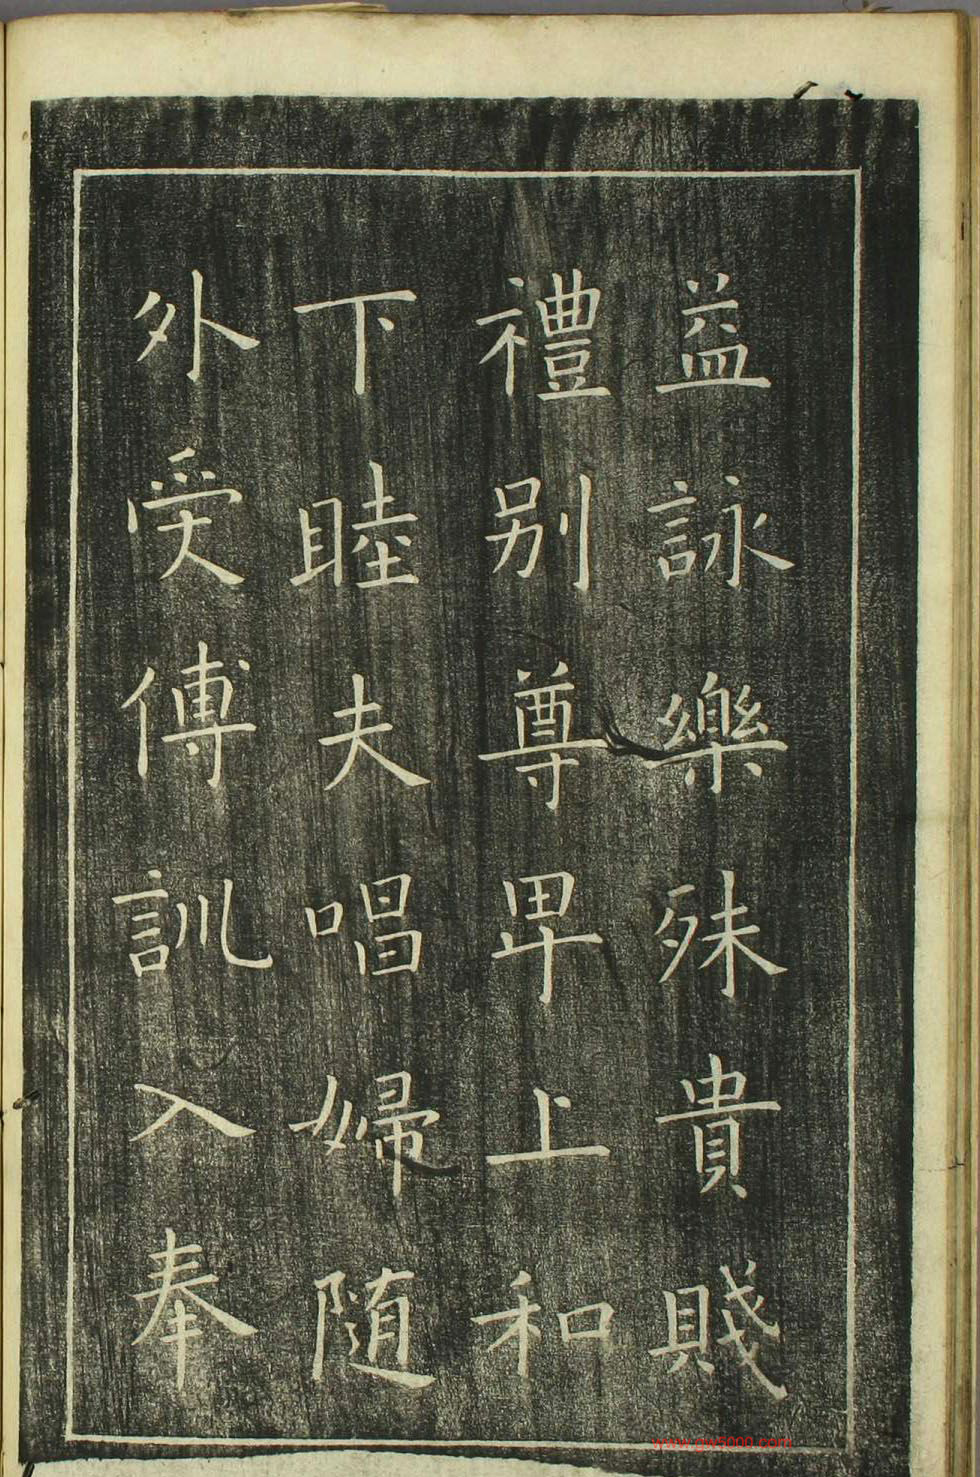 益詠樂殊貴賤
禮别尊卑上和
下睦夫唱婦随
外受傅訓入奉
www.gw5000.com